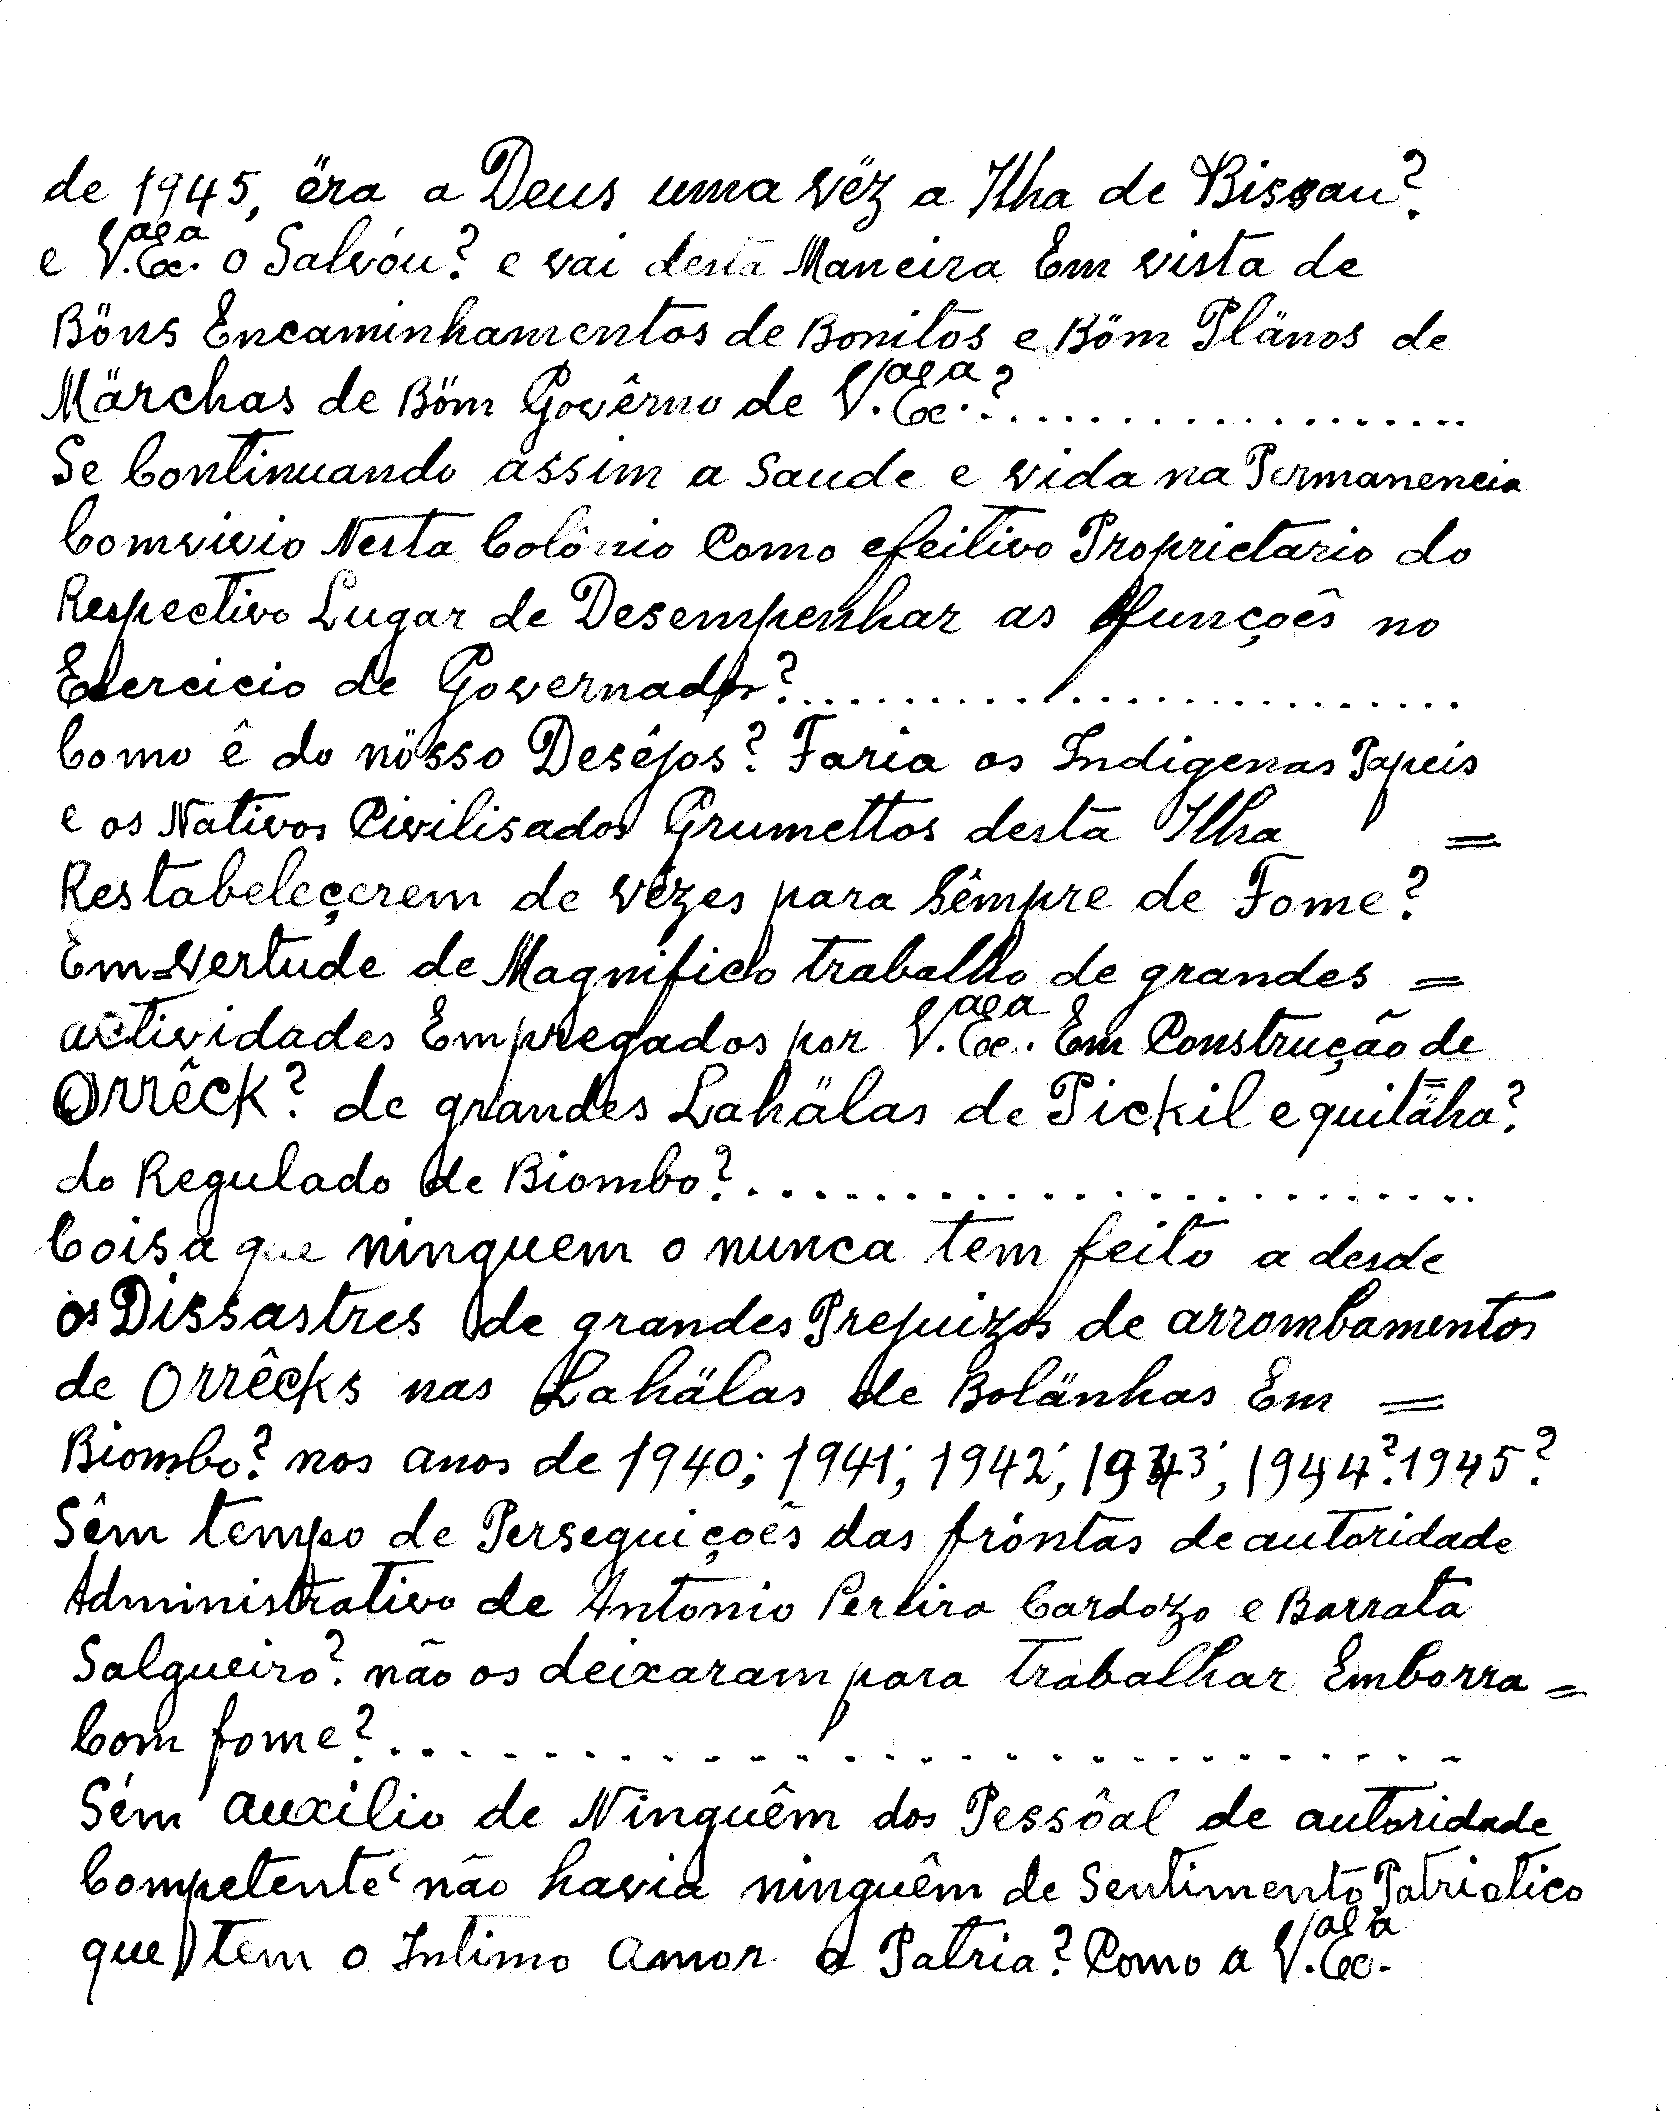 de 1945, ëra a Deus uma vëz a Ilha de Bissau?
e V. Exª. o Salvóu? e vai desta Maneira Em vista de
Böns Encaminhamentos de Bonitos e Böm Plänos de
Märchas de Böm Govêrno de V. Exª.?..................
Se Continuando assim a Saude e vida na Permanencia
Comvivio Nesta Colônio Como efeitivo Proprietario do
Respectivo Lugar de Desempenhar as funçoês no
Exercicio de Governador?..........................
Como ê do nösso Deséjos? Faria os Indigenas Papeis
e os Nativos Civilisados Grumettos desta Ilha =
Restabeleçerem de vêzes para Sêmpre de Fome?
Em=vertude de Magnifico trabalho de grandes =
actividades Empregados por V. Exª. Em Construção de
Orrêck? de grandes Lahälas de Pickil e quitäha?
do Regulado de Biombo?........................
Coisa que ninguem o nunca tem feito a desde
os Dissastres de grandes Prejuizos de arrombamentos
de Orrêcks nas Lahälas de Bolänhas Em =
Biombo? nos anos de 1940; 1941; 1942; 1943; 1944? 1945?
Sêm tempo de Perseguiçoês das fróntas de autoridade
Administrativo de Antonio Pereira Cardozo e Barrata
Salgueiro? não os deixaram para trabalhar Emborra =
Com fome?..............................
Sém auxilio de Ninguêm dos Pessôal de autoridade
Competente não havia ninguêm de Sentimento Patriotico
que tem o Intimo Amor a Patria? Como a V. Exª.